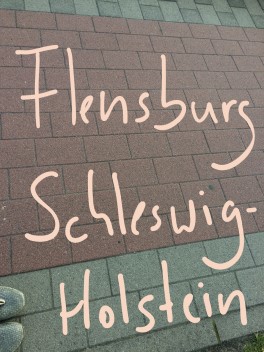 Flensburg
Schleswig-
Holstein